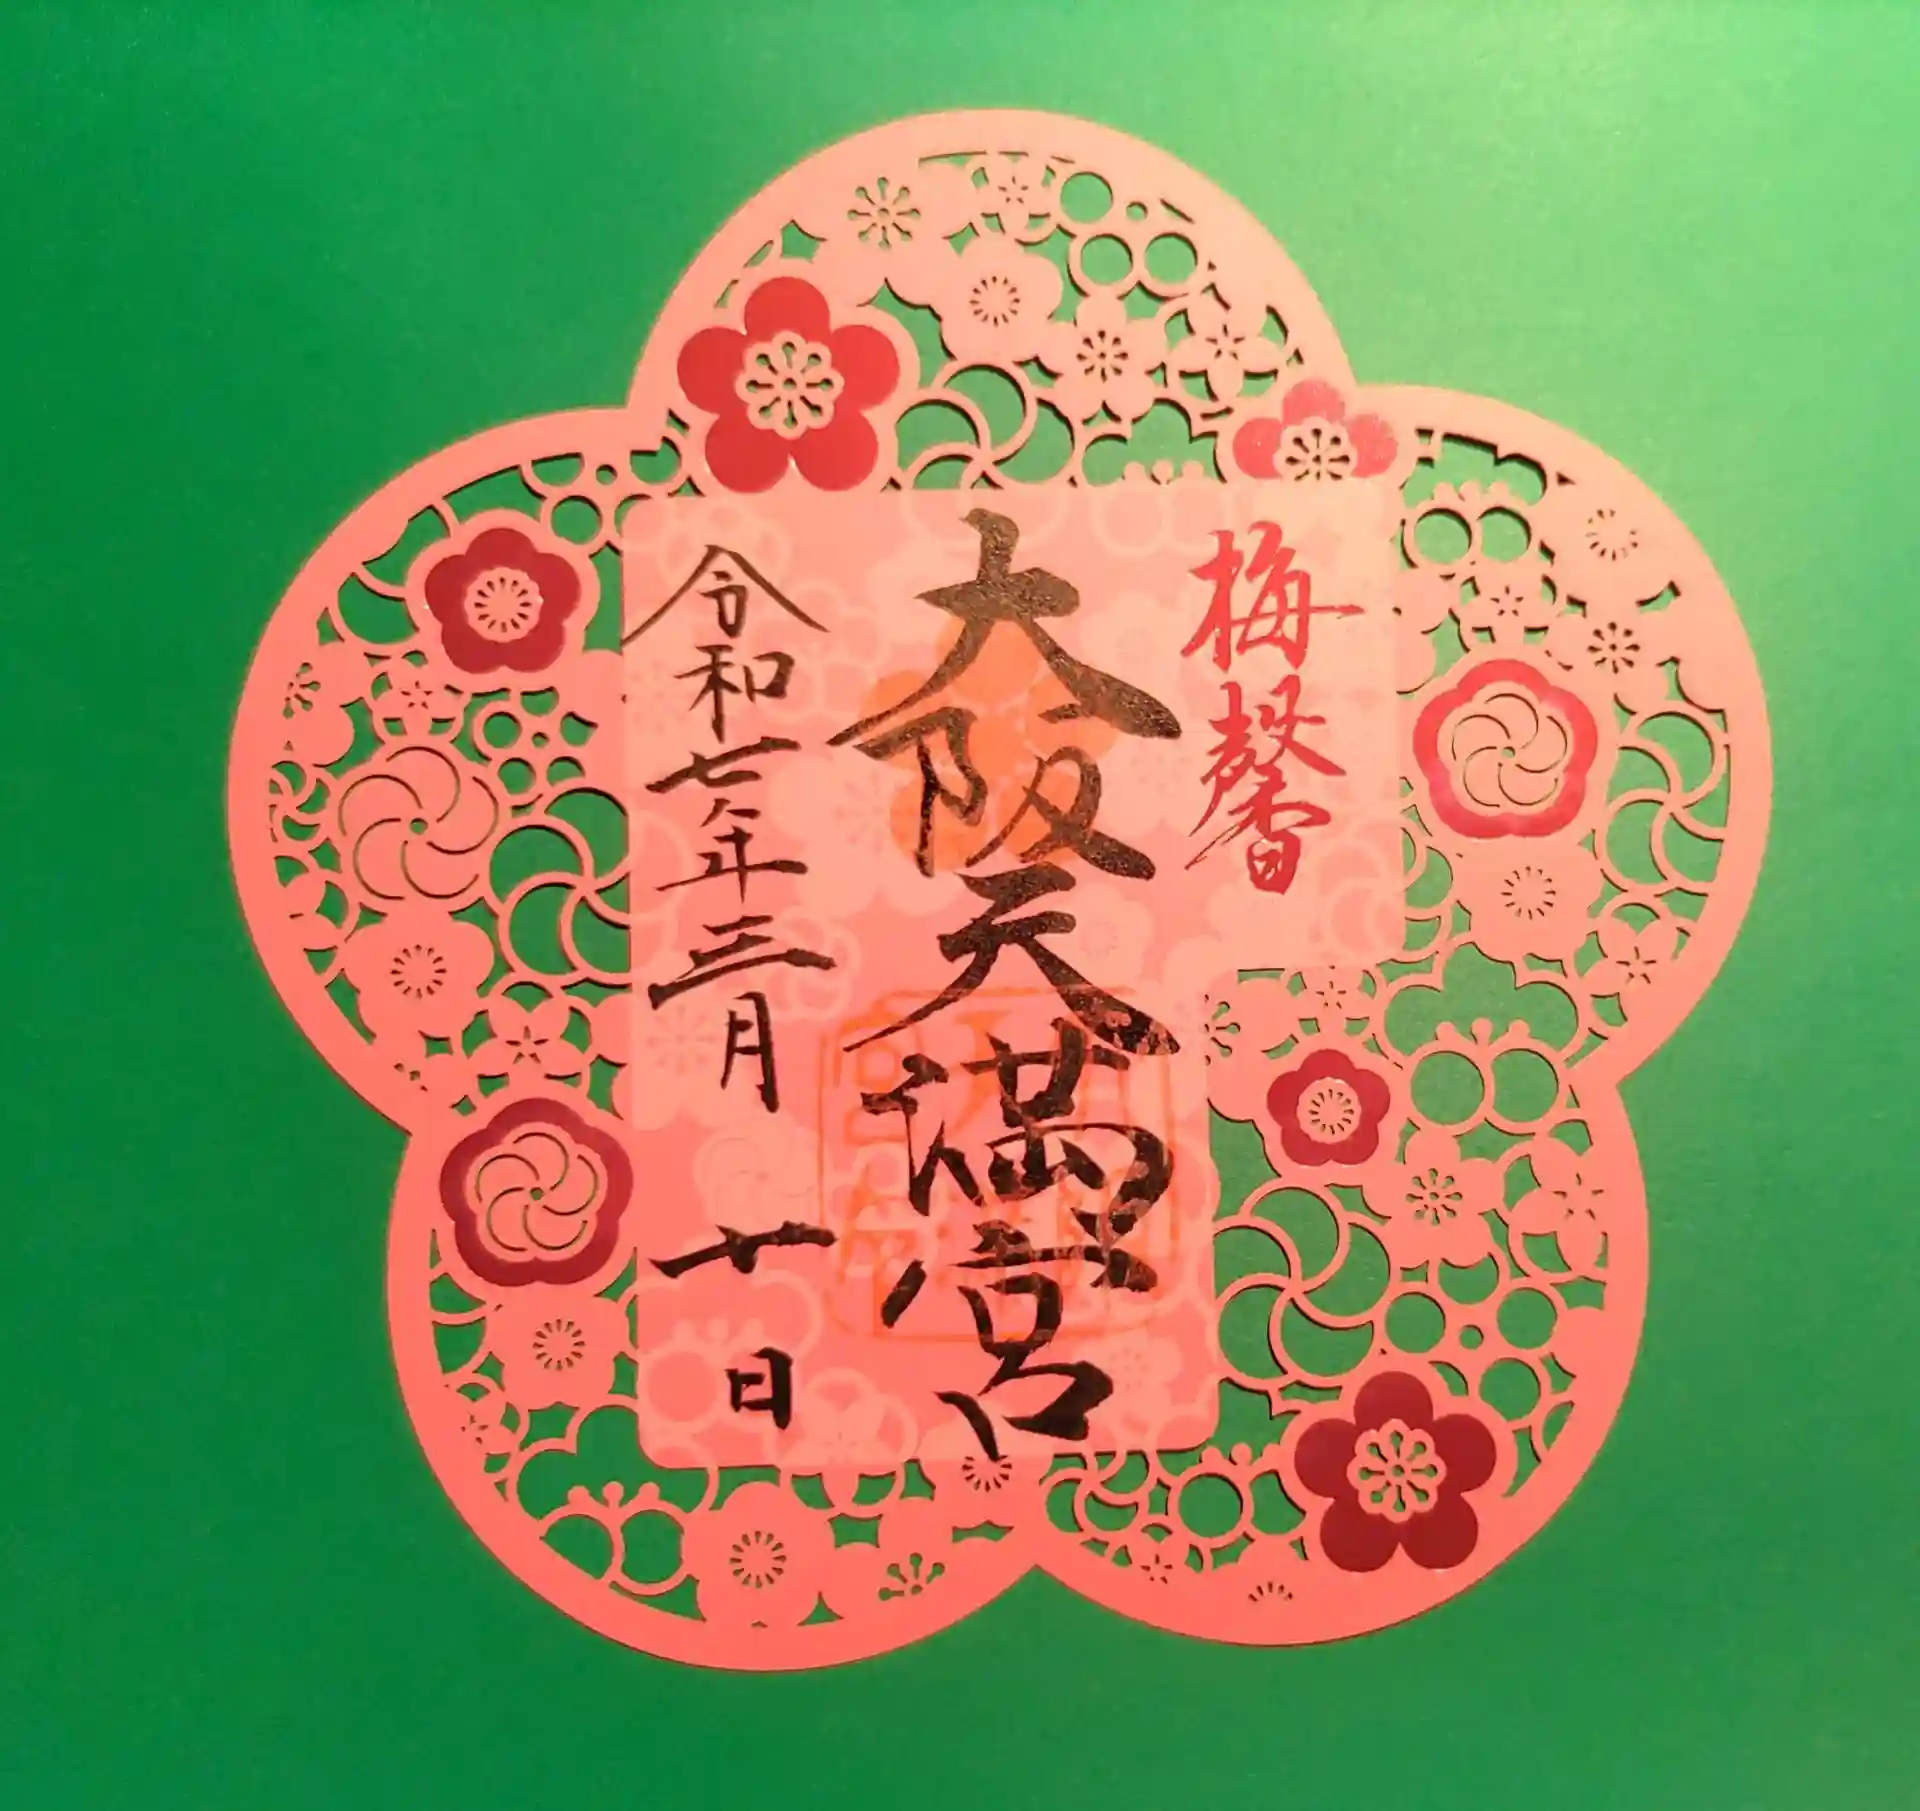 梅馨
大阪天満宮
令和七年三月十日